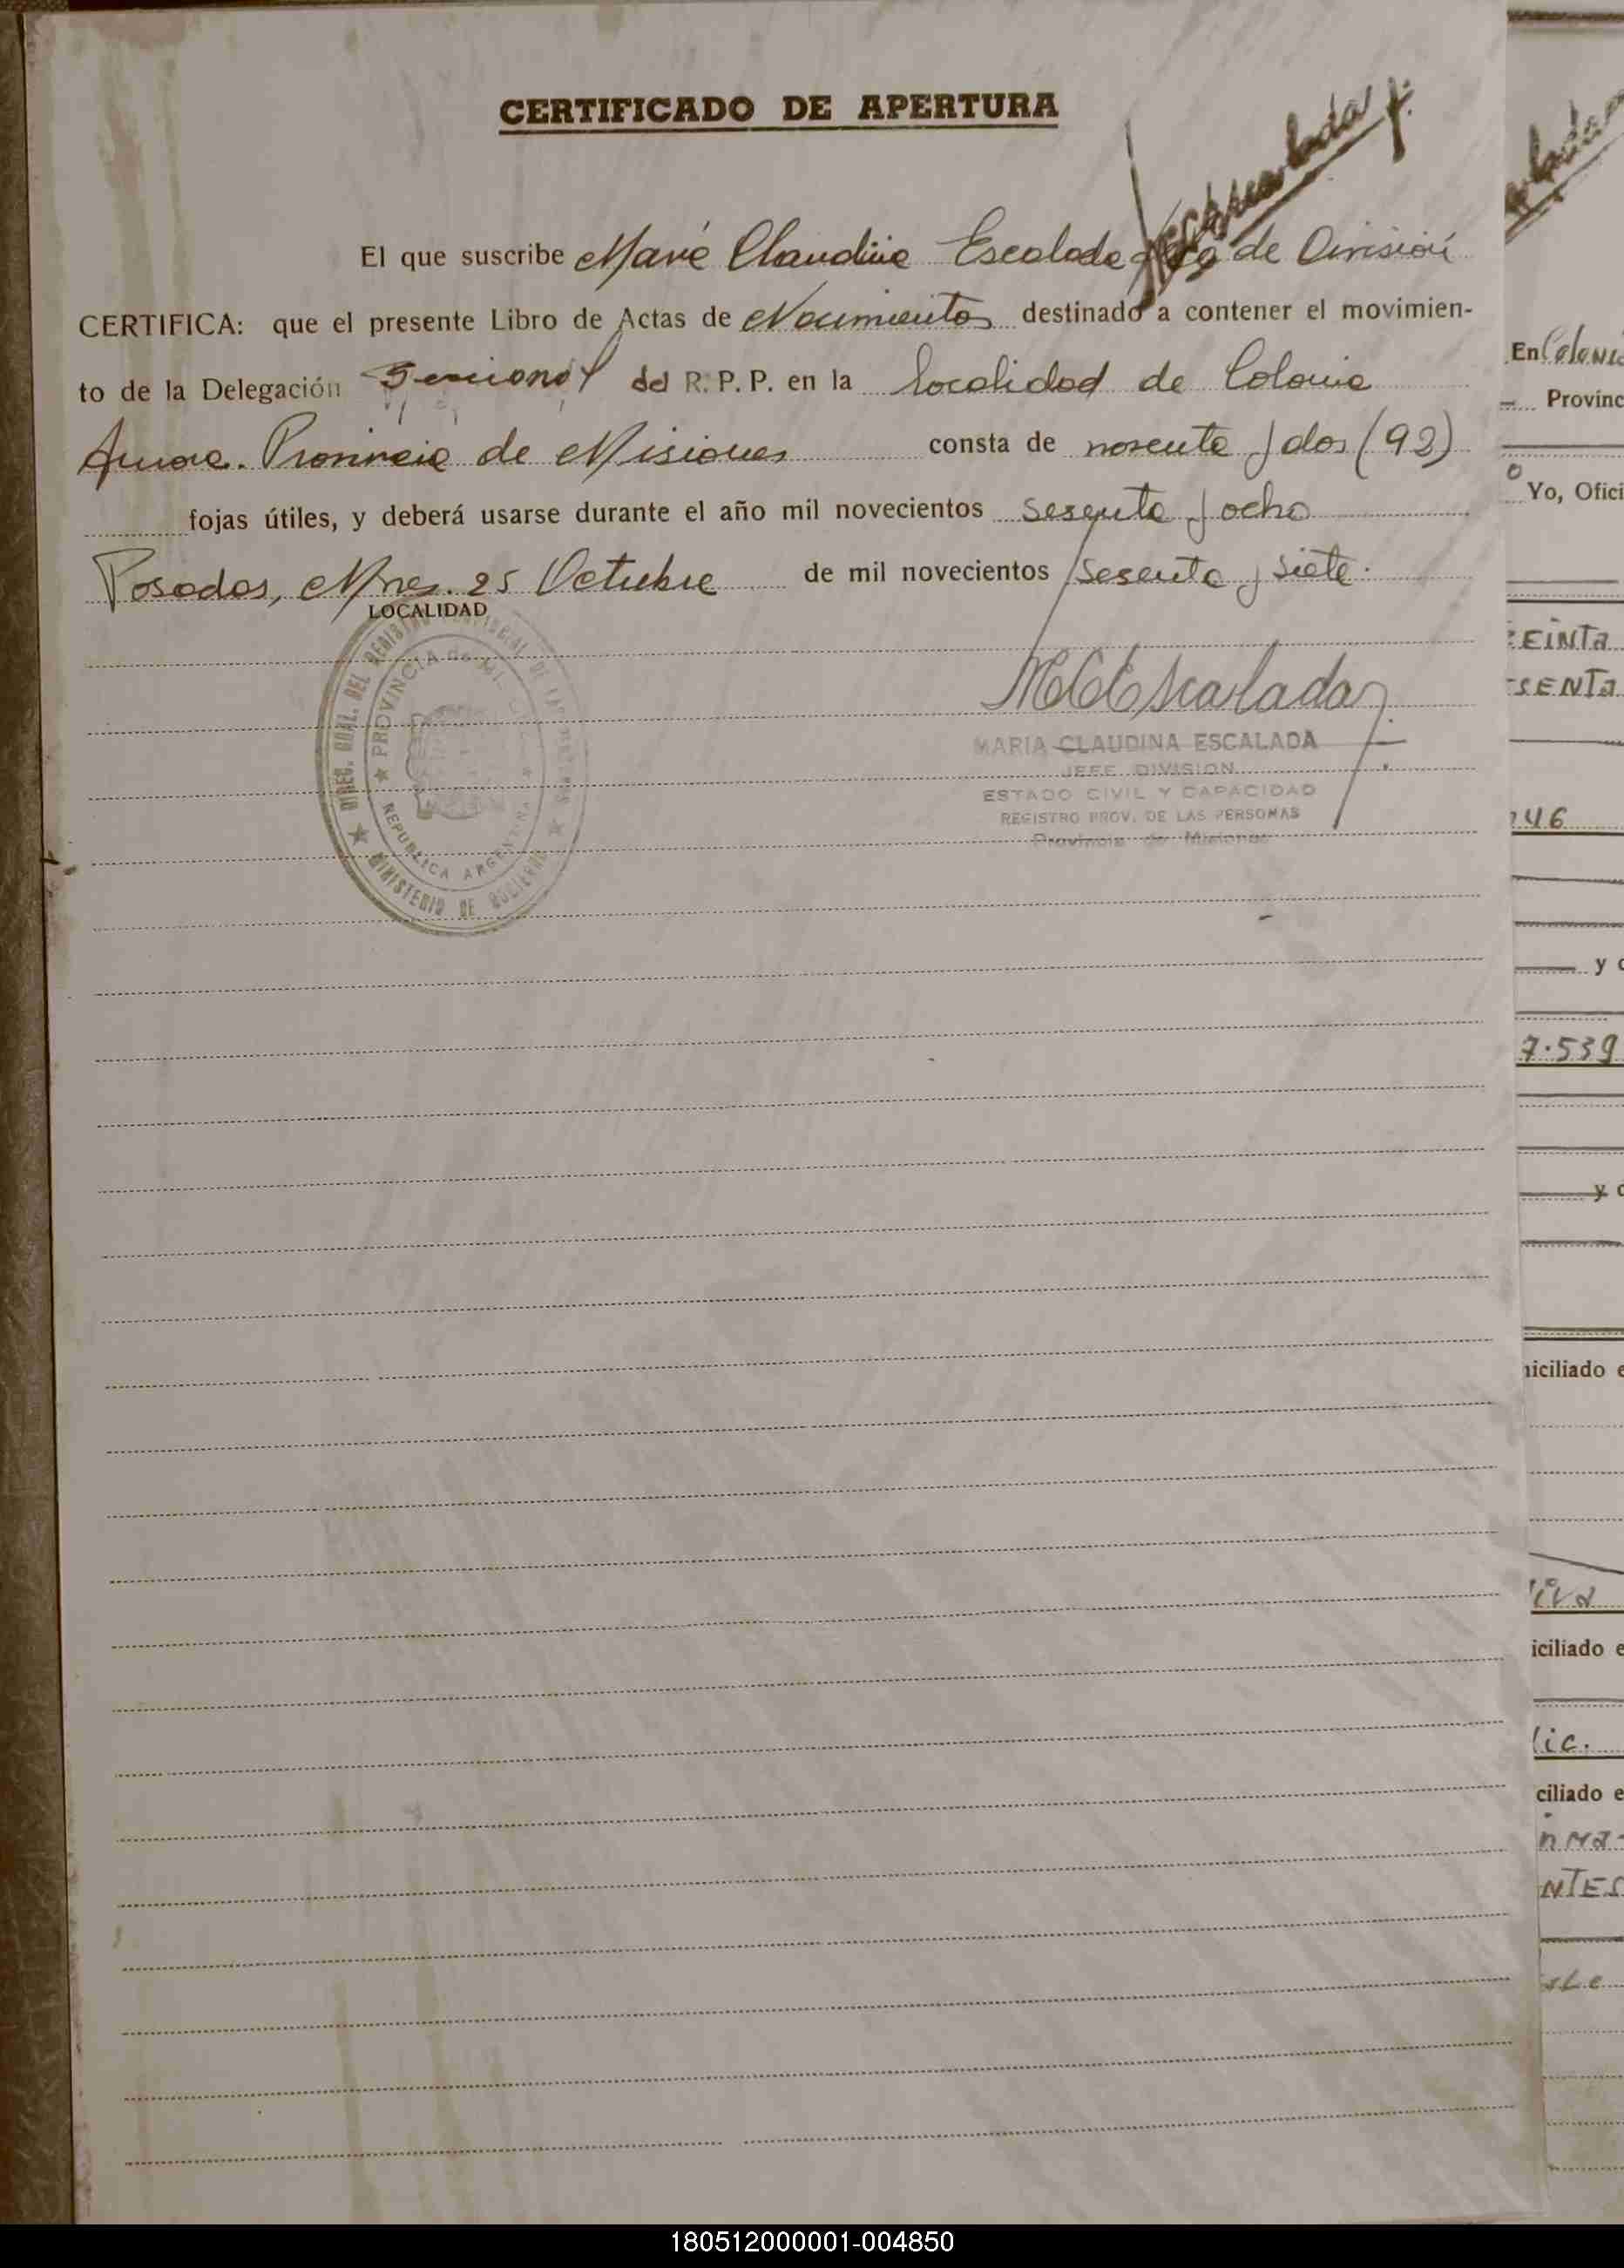 CERTIFICADO DE APERTURA
Escalada
El que suscribe María Claudina Escalada Jefe de División
CERTIFICA: que el presente Libro de Actas de Nacimientos destinado a contener el movimien-
to de la Delegación Seccional del R. P. P. en la localidad de Colonia
Aurora. Provincia de Misiones consta de noventa y dos (92)
fojas útiles, y deberá usarse durante el año mil novecientos sesenta y ocho
Posadas, Mnes. 25 Octubre de mil novecientos sesenta y siete.
LOCALIDAD
DIREC. GRAL. DEL REGISTRO PROVINCIAL DE LAS PERSONAS
PROVINCIA de MISIONES
REPUBLICA ARGENTINA
MINISTERIO DE GOBIERNO
MCEscalada
MARIA CLAUDINA ESCALADA
JEFE DIVISION
ESTADO CIVIL Y CAPACIDAD
REGISTRO PROV. DE LAS PERSONAS
Provincia de Misiones
En Coloni
Provinc
Yo, Ofici
EINTA
SENTA
46
y
7.539
y
iciliado e
iciliado e
lic.
ciliado e
NTES
180512000001-004850